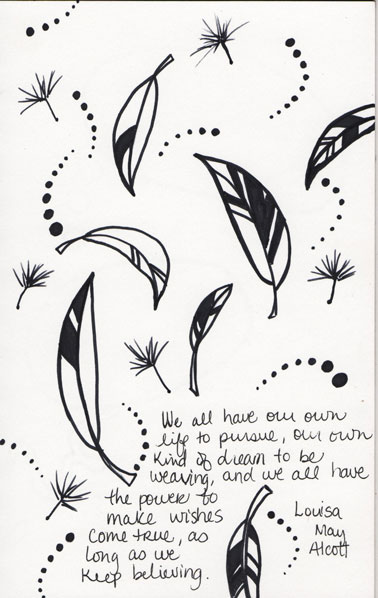 We all have our own
life to pursue, our own
kind of dream to be
weaving, and we all have
the power to
make wishes
come true, as
long as we
keep believing.
Louisa
May
Alcott